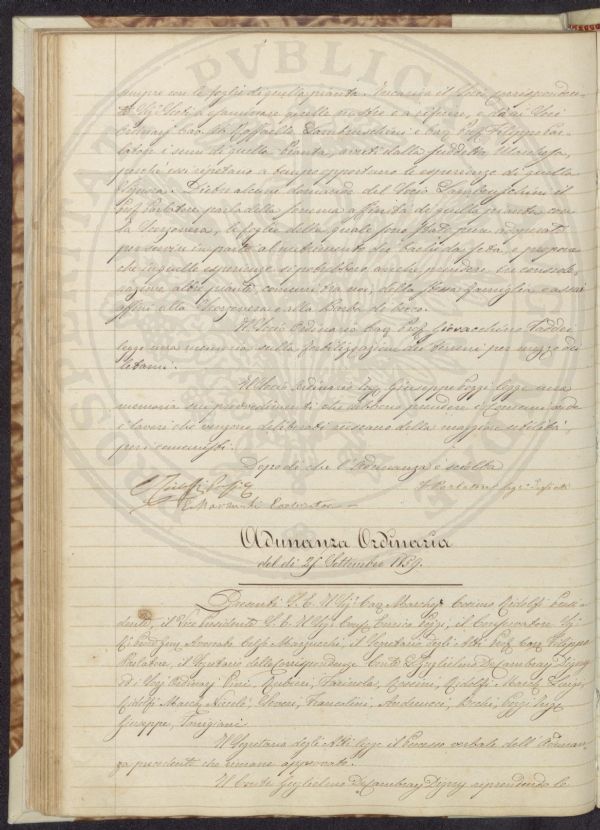 sempre con le foglie di questa pianta. Incarica il Socio corrisponden-
te Sig. a esaminare quelle e a riferire, e dà ai Soci
Ordinarj Cav. Ab. Raffaello Lambruschini e Cav. Prof. Filippo Par-
latore i semi di quella Pianta, avuti dalla suddetta Marchesa,
perchè essi ripetano a tempo opportuno le esperienze di quella
Signora. Dietro alcune domande del Socio Lambruschini il
Prof. Parlatore parla della somma affinità di quella pianta con
la Scorzonera, le foglie della quale sono state pure adoperate
per servire in parte al nutrimento dei bachi da seta, e propone
che in quelle esperienze si potrebbero anche prendere in conside-
razione altre piante comuni tra noi, della stessa famiglia e assai
affini alla Scorzonera e alla Barba di becco.
Il Socio Ordinario Cav. Prof. Giovacchino Taddei
legge una memoria sulla fertilizzazione dei terreni per mezzo dei
letami.
Il Socio Ordinario Ing. Giuseppe Pozzi legge una
memoria sui provvedimenti che debbono prendere i Comuni onde
i lavori che vengono deliberati riescano della maggiore utilità
per i comunisti.
Dopo di che l'Adunanza è sciolta
F. Parlatore Seg.
C. Marzucchi
Adunanza Ordinaria
del dì 25 Settembre 1859.
Presenti S. E. il Sig. Cav. Marchese Cosimo Ridolfi Presi-
dente, il Vice Presidente S. E. il Sig. Enrico Poggi, il Conservatore Sig.
Avvocato Celso Marzucchi, il Segretario degli Atti Prof. Cav. Filippo
Parlatore, il Segretario delle Corrispondenze Conte Guglielmo De Cambray Digny
ed i Sigg. Ordinarj Pini, Rubieri, Farinola, Corsini, Ridolfi March. Luigi,
Ridolfi March. Niccolò, Franceolini, Andreucci, Bechi, Pozzi Ing.
Giuseppe,
Il Segretario degli Atti legge il Processo verbale dell'Adunan-
za precedente che rimane approvato.
Il Conte Guglielmo De Cambray Digny riprendendo le